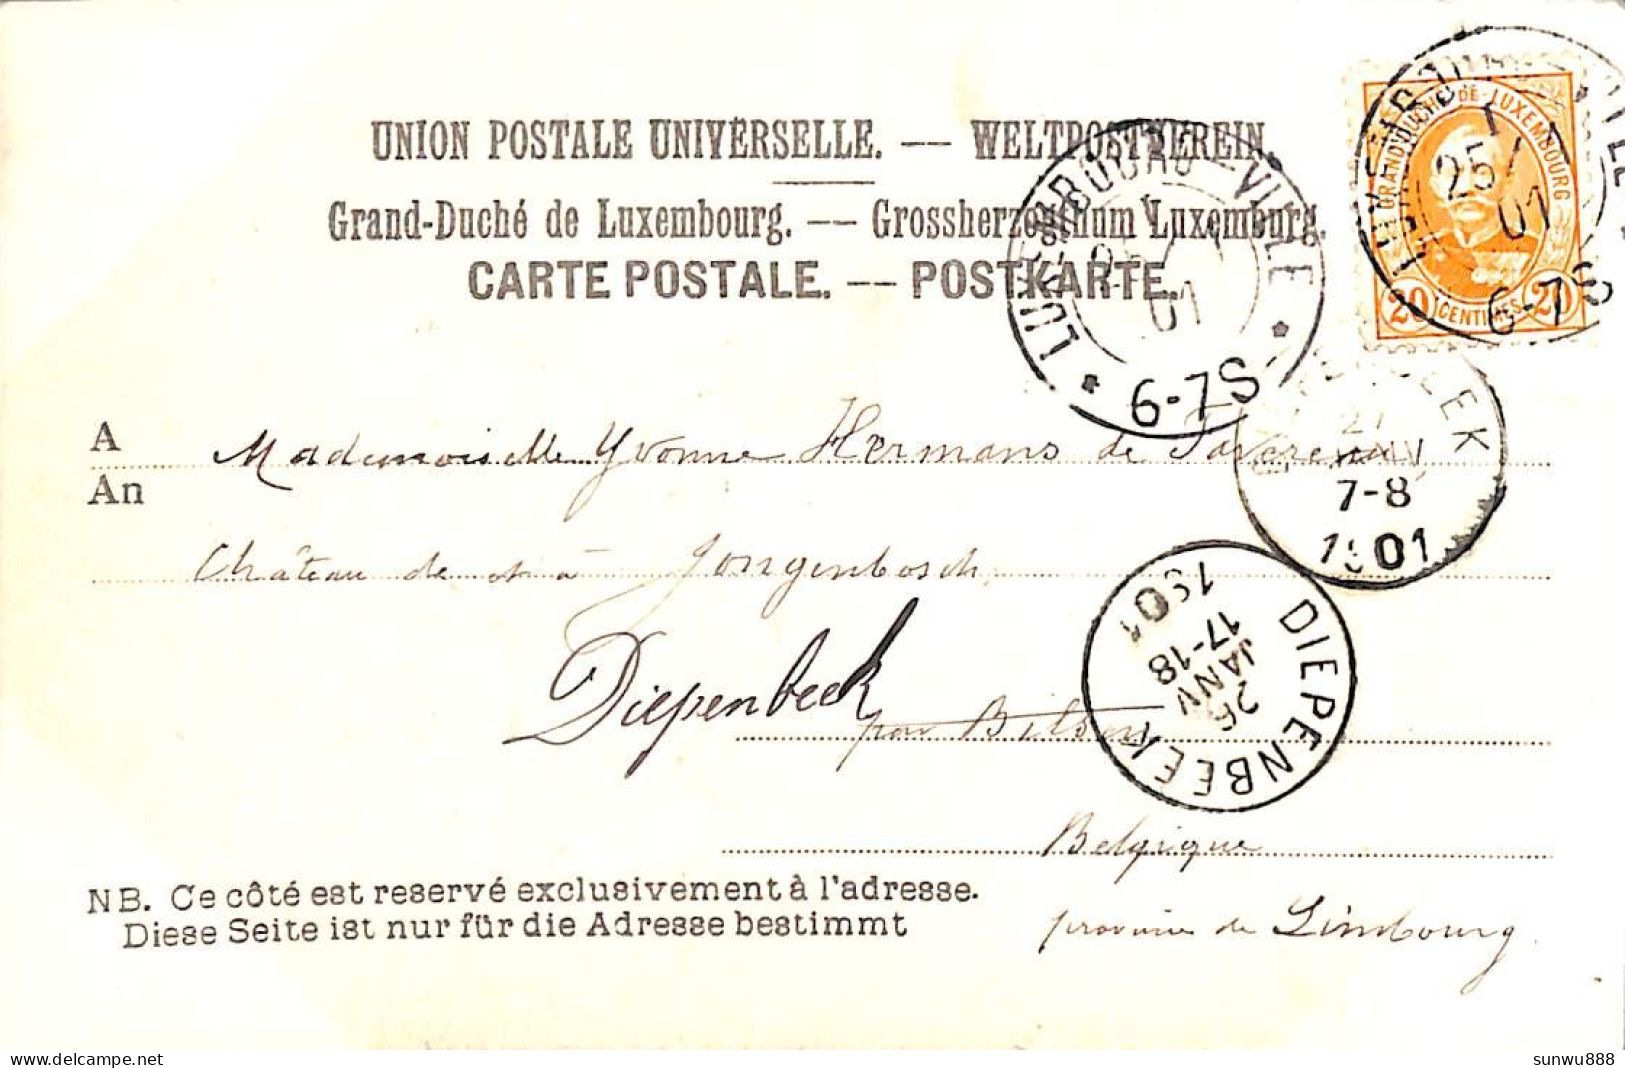 UNION POSTALE UNIVERSELLE. — WELTPOSTVEREIN.
Grand-Duché de Luxembourg. — Grossherzogthum Luxemburg.
CARTE POSTALE. — POSTKARTE.
GRAND DUCHÉ DE LUXEMBOURG
20 CENTIMES 20
LUXEMBOURG - VILLE
25 / 1
01
6-7S
LUXEMBOURG - VILLE
25 / 1
01
6-7S
27
JANV
7-8
1901
A Mademoiselle Yvonne Hermans de
An
Château de et à Jongenbosch
Diepenbeek par Bilsen
DIEPENBEEK
26
JANV
17-18
1901
Belgique
province de Limbourg
NB. Ce côté est reservé exclusivement à l'adresse.
Diese Seite ist nur für die Adresse bestimmt
sunwu888